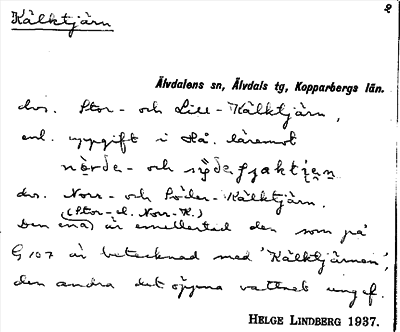 Kälktjärn
2
Älvdalens sn, Älvdals tg, Kopparbergs län.
dvs. Stor- och Lill-Kälktjärn,
enl. uppgift i Hå. däremot
dvs. Norr- och Söder-Kälktjärn.
(Stor- el. Norr-K.)
Den ena är emellertid den som på
G 107 är betecknad med 'Kälktjärnen',
den andra det öppna vattnet
HELGE LINDBERG 1937.